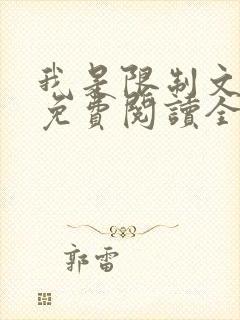 我是限制文
免費閱讀全
郭雷